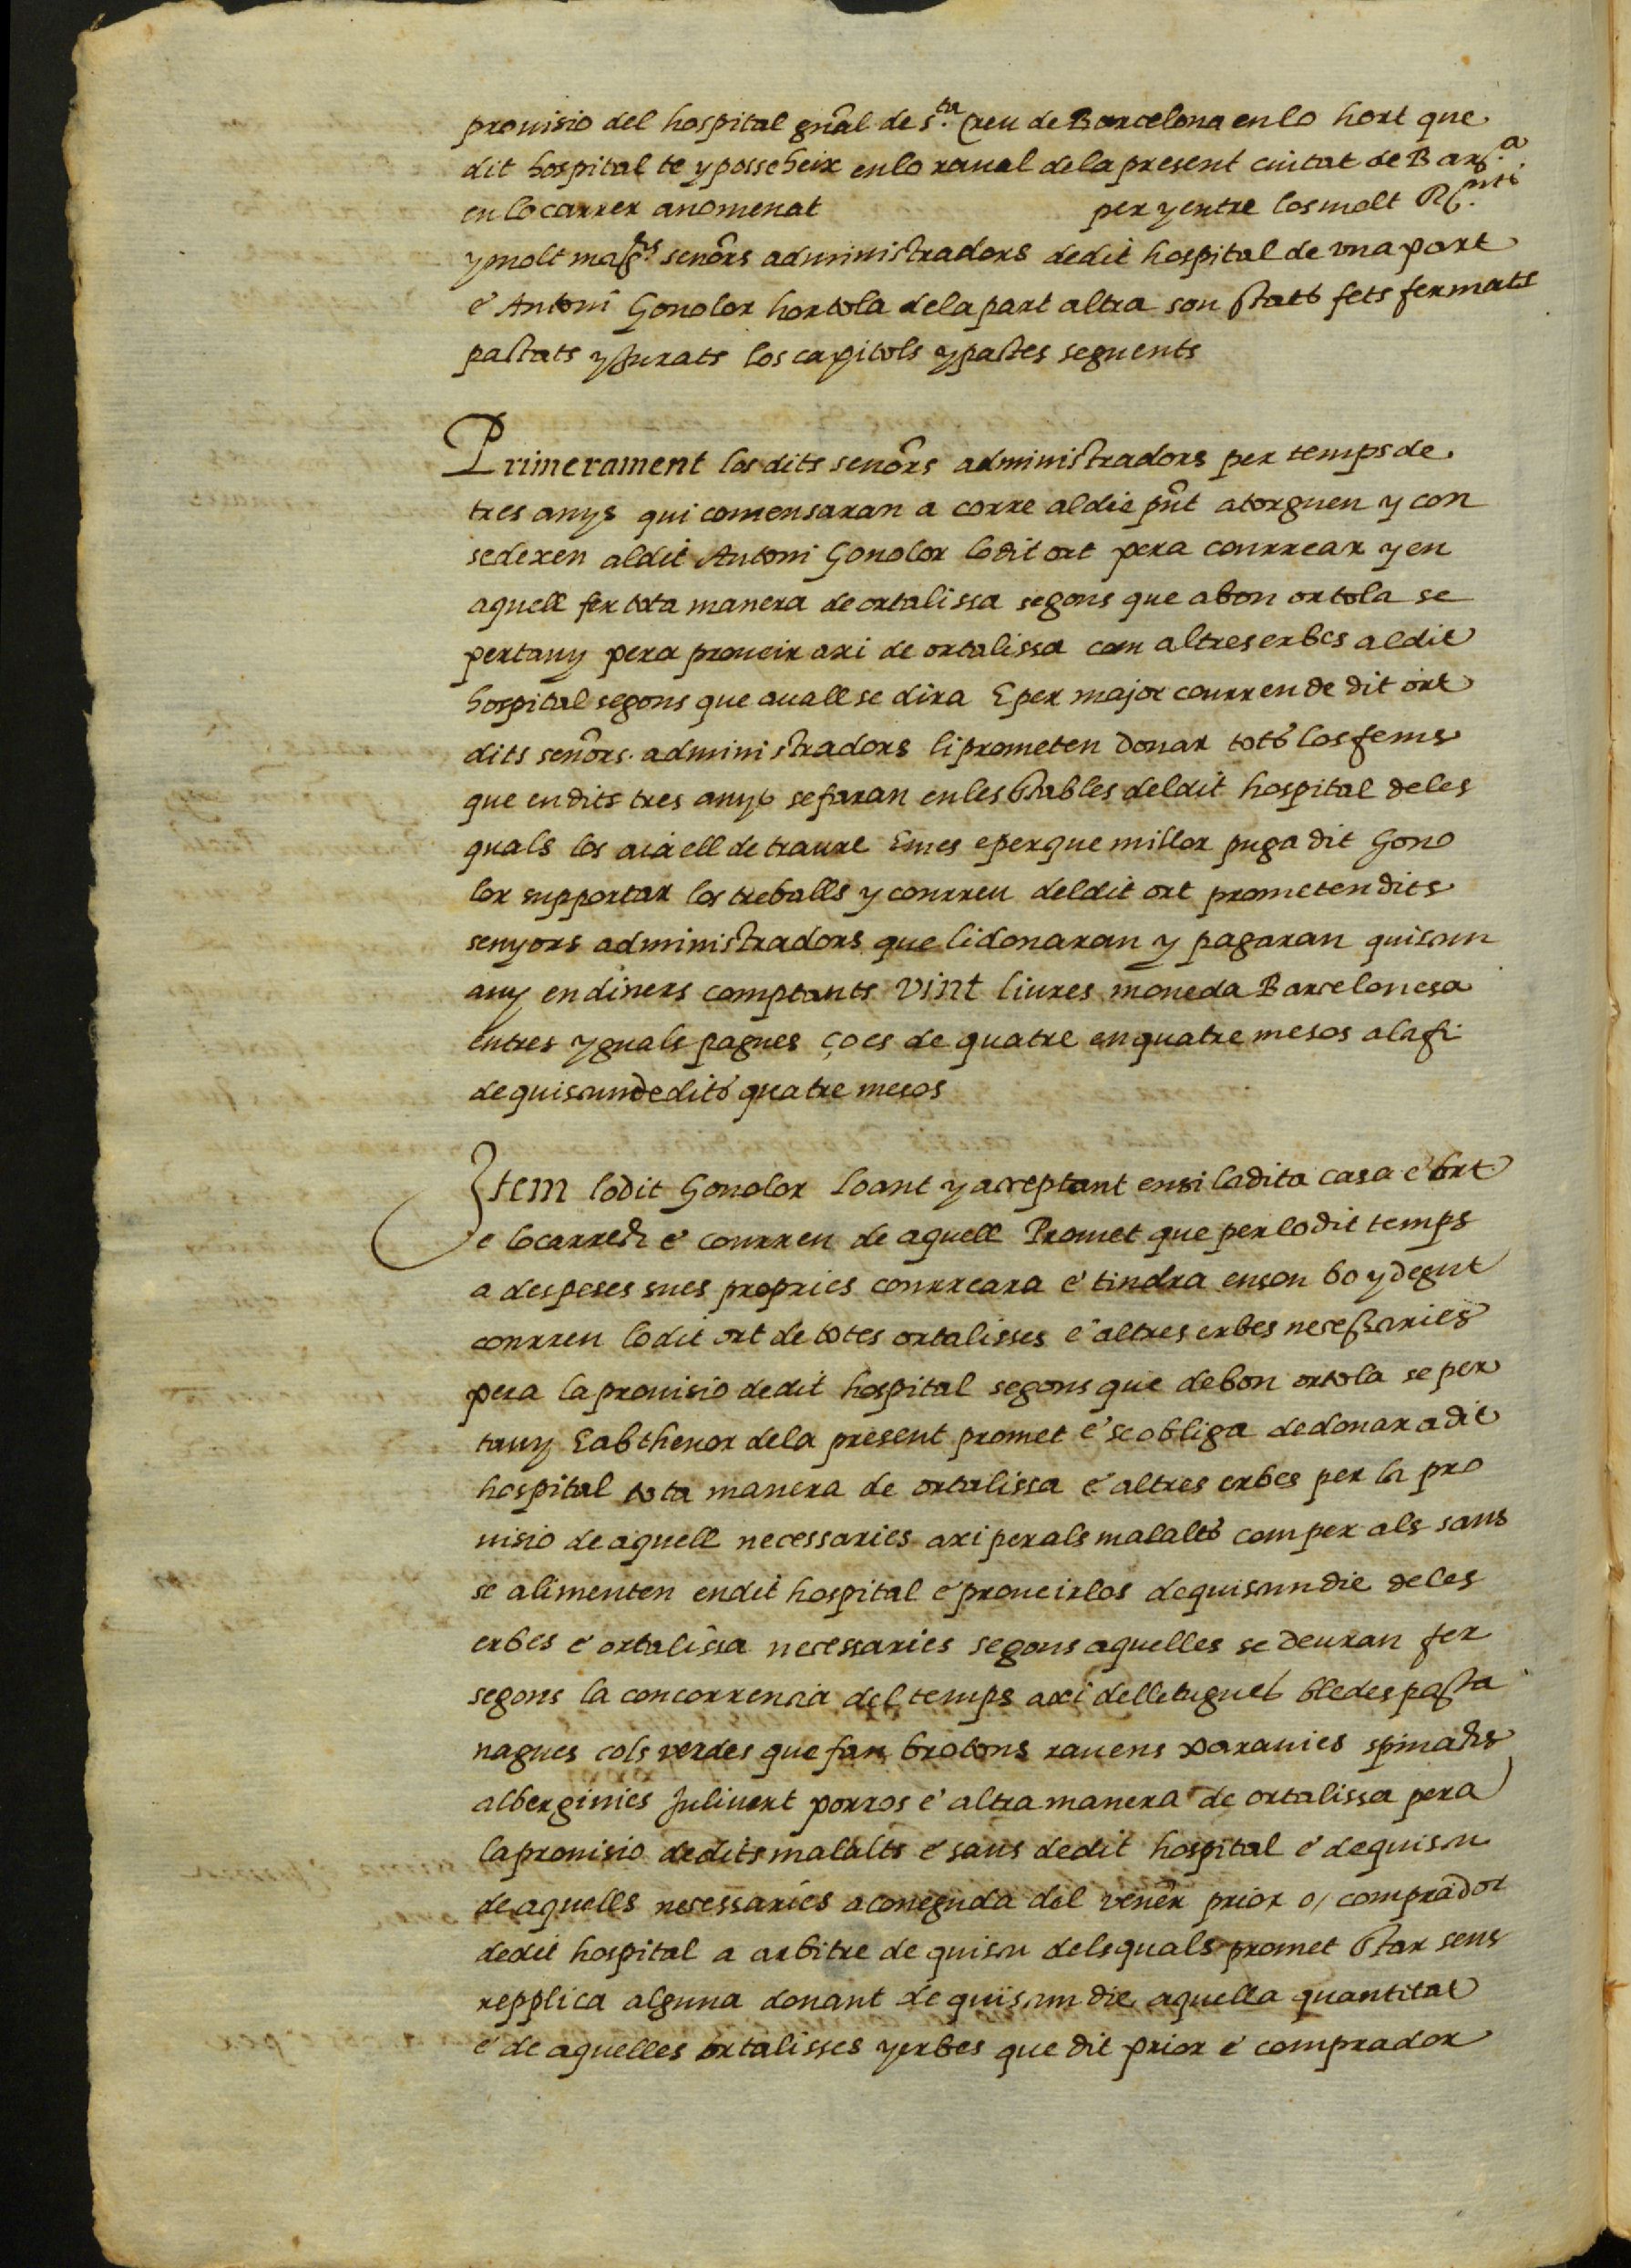 prouisio del hospital gñal de S.ta Creu de Barcelona en lo hort que
dit hospital te y posseheix en lo raual de la present ciutat de Barç.a
en lo carrer anomenat per y entre los molt R.nts
y molt mag.chs señors administradors de dit hospital de vna part
e Antoni Gonolor hortola de la part altra son stats fets fermats
pactats y jurats los capitols y pactes seguents
Primerament los dits señors administradors per temps de
tres anys qui comensaran a corre al die pñt atorguen y con
sedexen al dit Antoni Gonolor lo dit ort pera conrrear y en
aquell fer tota manera de ortalissa segons que a bon ortola se
pertany pera proueir axi de ortalissa com altres erbes al dit
hospital segons que auall se dira E per major conrreu de dit ort
dits señors administradors li prometen donar tots los fems
que en dits tres anys se faran en les stables del dit hospital de les
quals los aia ell de traure E mes e per que millor puga dit Gono
lor supportar los treballs y conrreu del dit ort prometen dits
senyors administradors que li donaran y pagaran quiscun
any en diners comptants vint liures moneda Barcelonesa
en tres yguals pagues ço es de quatre en quatre mesos a la fi
de quiscun de dits quatre mesos
Item lo dit Gonolor loant y acceptant en si la dita casa e ort
e lo carrech e conrreu de aquell Promet que per lo dit temps
a despeses sues propries conrreara e tindra en son bo y degut
conrreu lo dit ort de totes ortalisses e altres erbes necessaries
pera la prouisio de dit hospital segons que de bon ortola se per
tany E ab thenor de la present promet e se obliga de donar a dit
hospital tota manera de ortalissa e altres erbes per la pro
uisio de aquell necessaries axi per als malalts com per als sans
se alimenten en dit hospital e proueirlos de quiscun die de les
erbes e ortalissa necessaries segons aquelles se deuran fer
segons la concorrencia del temps axi de lletugues bledes pasta
nagues cols verdes que fan brotons rauens xarauies spinachs
alberginies juliuert porros e altra manera de ortalissa pera
la prouisio de dits malalts e sans de dit hospital e de quiscu
de aquells necessaries a coneguda del venēr prior o/ comprador
de dit hospital a arbitre de quiscu dels quals promet star sens
repplica alguna donant de quiscun die aquella quantitat
e de aquelles ortalisses y erbes que dit prior e comprador